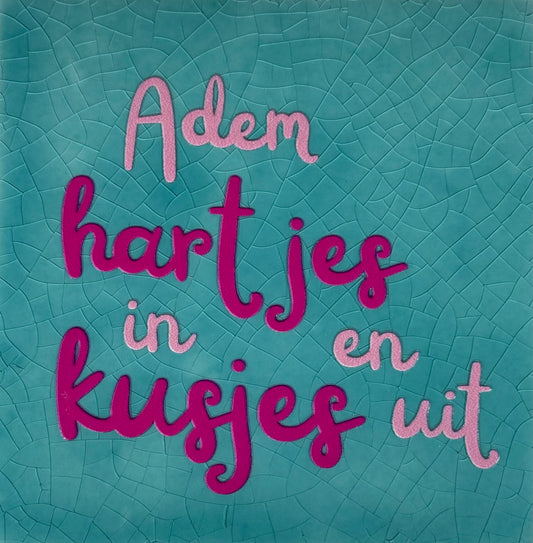 Adem
hartjes
in en
kusjes uit